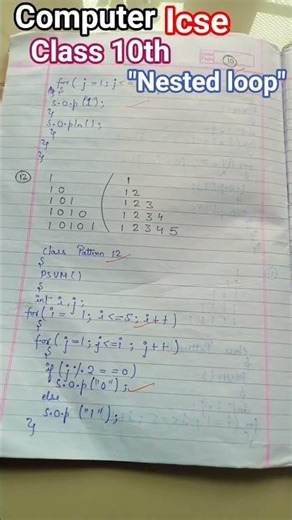 Computer Icse
Class 10th
"Nested loop"
10
for( j=1; j<=
S.O.p(1);
}
S.O.pln();
}
}
}
12
1 1
1 0 1 2
1 0 1 1 2 3
1 0 1 0 1 2 3 4
1 0 1 0 1 1 2 3 4 5
class Pattern 12
{
PSVM()
{
int i,j;
for(i = 1; i<=5; i++)
{
for(j=1; j<=i ; j++)
{
if (j%2==0)
S.O.p("0");
else
S.O.p ("1");
}